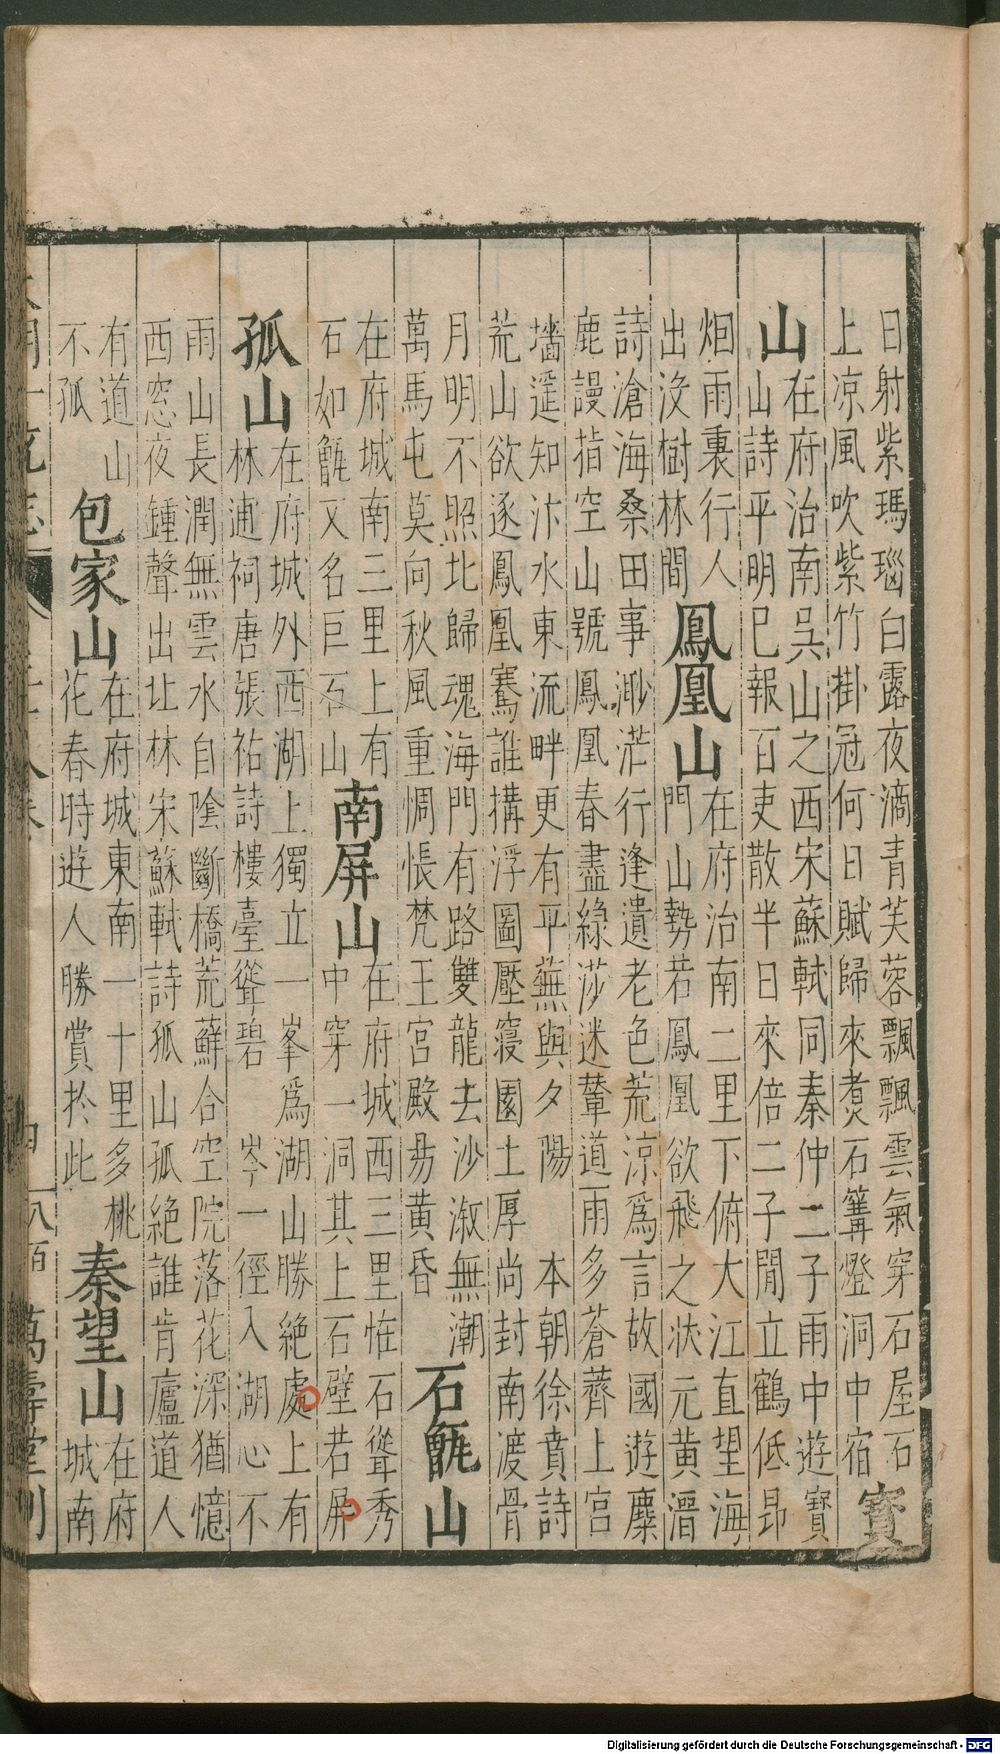 日射紫瑪瑙白露夜滴青芙蓉飄飄雲氣穿石屋石
上凉風吹紫竹掛冠何日賦歸來煑石篝燈洞中宿
寳
山
在府治南吳山之西宋蘇軾同秦仲二子雨中遊寶
山詩平明已報百吏散半日來倍二子閒立鶴低昂
烟雨裏行人
出没樹林間
鳳凰山
在府治南二里下俯大江直望海
門山勢若鳳凰欲飛之狀元黄溍
詩滄海桑田事渺茫行逢遺老色荒凉爲言故國遊麋
鹿謾指空山號鳳凰春盡綠莎迷輦道雨多蒼薺上宮
墻遥知汴水東流畔更有平蕪與夕陽 本朝徐賁詩
荒山欲逐鳳凰騫誰搆浮圖壓寢園土厚尚封南渡骨
月明不照北歸魂海門有路雙龍去沙漵無潮
萬馬屯莫向秋風重惆悵梵王宮殿昜黄昏
石甑山
在府城南三里上有
石如甑又名巨石山
南屏山
在府城西三里恠石聳秀
中穿一洞其上石壁若屏
孤山
在府城外西湖上獨立一峯爲湖山勝絶處上有
林逋祠唐張祐詩樓臺聳碧岑一徑入湖心不
雨山長潤無雲水自陰斷橋荒蘚合空院落花深猶憶
西窓夜鍾聲出北林宋蘇軾詩孤山孤絶誰肯廬道人
有道山
不孤
包家山
在府城東南一十里多桃
花春時遊人勝賞於此
秦望山
在府
城南
萬壽堂刊
Digitalisierung gefördert durch die Deutsche Forschungsgemeinschaft - DFG